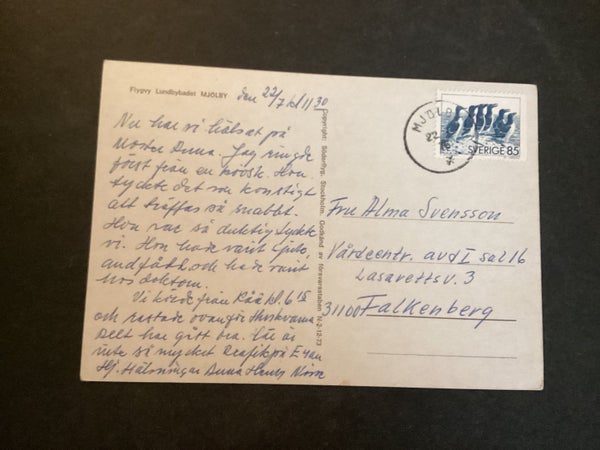 Flygvy Lundbybadet MJÖLBY
den 22/7 kl 11 30
Nu har vi hälsat på
Moster Anna. Jag ringde
först från en kiosk. Hon
tyckte det var konstigt
att träffas så snabbt.
Hon var så duktig tyckte
vi. Hon hade varit sjuk,
andfådd och hade varit
hos doktorn.
Vi körde från Råå kl. 6 15
och rastade ovanför Huskvarna
Allt har gått bra. Här är
inte så mycket trafik på E4an
Hj. Hälsningar Anna
Copyright: Söderflyg, Stockholm. Godkänd av försvarsstaben N-2-12-73
MJÖLBY
22
SVERIGE 85
Fru Alma Svensson
Vårdcentr. avd I sal 16
Lasarettsv. 3
31100 Falkenberg